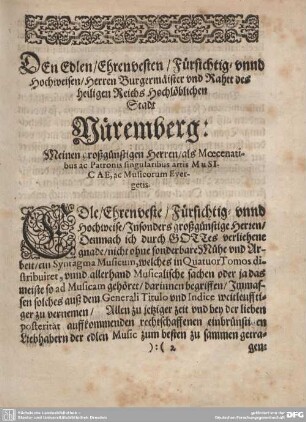 DEn Edlen/Ehrenvesten/Fürsichtig/vnnd
Hochweisen/Herren Burgermäister vnd Raht des
heiligen Reichs Hochlöblichen
Stadt
Nüremberg:
Meinen großgünstigen Herren/als Mœcenati-
bus ac Patronis singularibus artis MuSI-
CAE, ac Musicorum Ever-
getis.
EDle/Ehrenveste/Fürsichtig/vnnd
Hochweise/Insonders großgünstige Herren/
Demnach ich durch GOTTes verliehene
gnade/nicht ohne sonderbare Mühe vnd Ar-
beit/ein Syntagma Musicum, welches in Quatuor Tomos di-
stribuiret, vnnd allerhand Musicalische sachen oder ja das
meiste so ad Musicam gehöret/darinnen begriffen/Inmas-
sen solches auß dem Generali Titulo vnd Indice weitleufti-
ger zu vernemen/Allen zu jetziger zeit vnd bey der lieben
posteritat aufftkommenden rechtschaffenen einbrünstigen
Liebhabern der edlen Music zum besten zu sammen getra-
):( 2
gen: